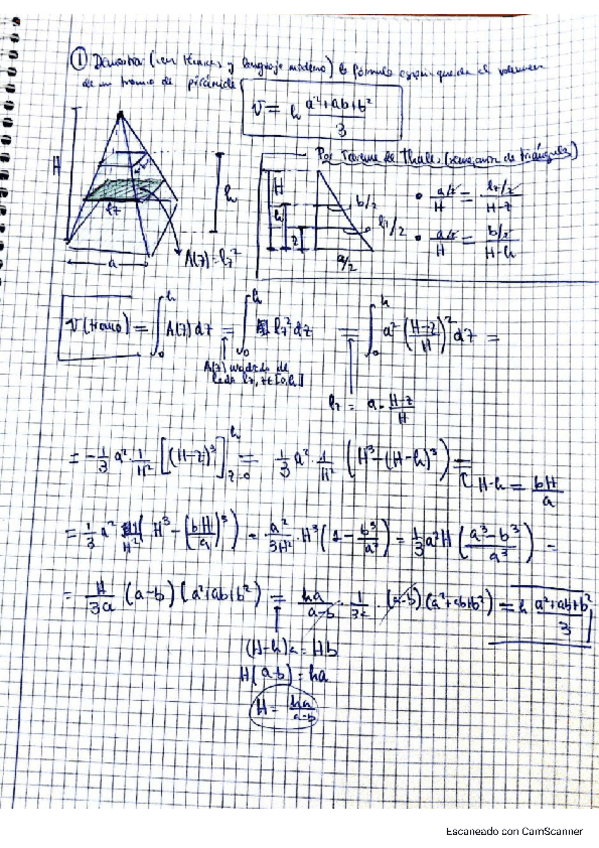 ① Demostrar (con técnicas y lenguaje moderno) la fórmula egipcia que da el volumen
de un tronco de pirámide
V = h (a²+ab+b²)/3
Por Teorema de Thales (semejanza de triángulos)
H
h
l_z
a
A(z) = l_z²
H
h
z
b/2
l_z/2
a/2
• (a/2)/H = (l_z/2)/(H-z)
• (a/2)/H = (b/2)/(H-h)
V(tronco) = ∫₀ʰ A(z) dz = ∫₀ʰ l_z² dz = ∫₀ʰ a² ((H-z)/H)² dz =
A(z) cuadrado de
lado l_z, z∈[0,h]
l_z = a · (H-z)/H
= -1/3 a² · 1/H² [(H-z)³]_{z=0}^{h} = 1/3 a² · 1/H² (H³-(H-h)³) =
H-h = bH/a
= 1/3 a² 1/H² (H³ - (bH/a)³) = a²/3H² · H³ (1 - b³/a³) = 1/3 a² H ((a³-b³)/a³) =
= H/3a (a-b) (a²+ab+b²) = ha/(a-b) · 1/3a · (a-b) (a²+ab+b²) = h (a²+ab+b²)/3
(H-h)a = Hb
H(a-b) = ha
H = ha/(a-b)
Escaneado con CamScanner